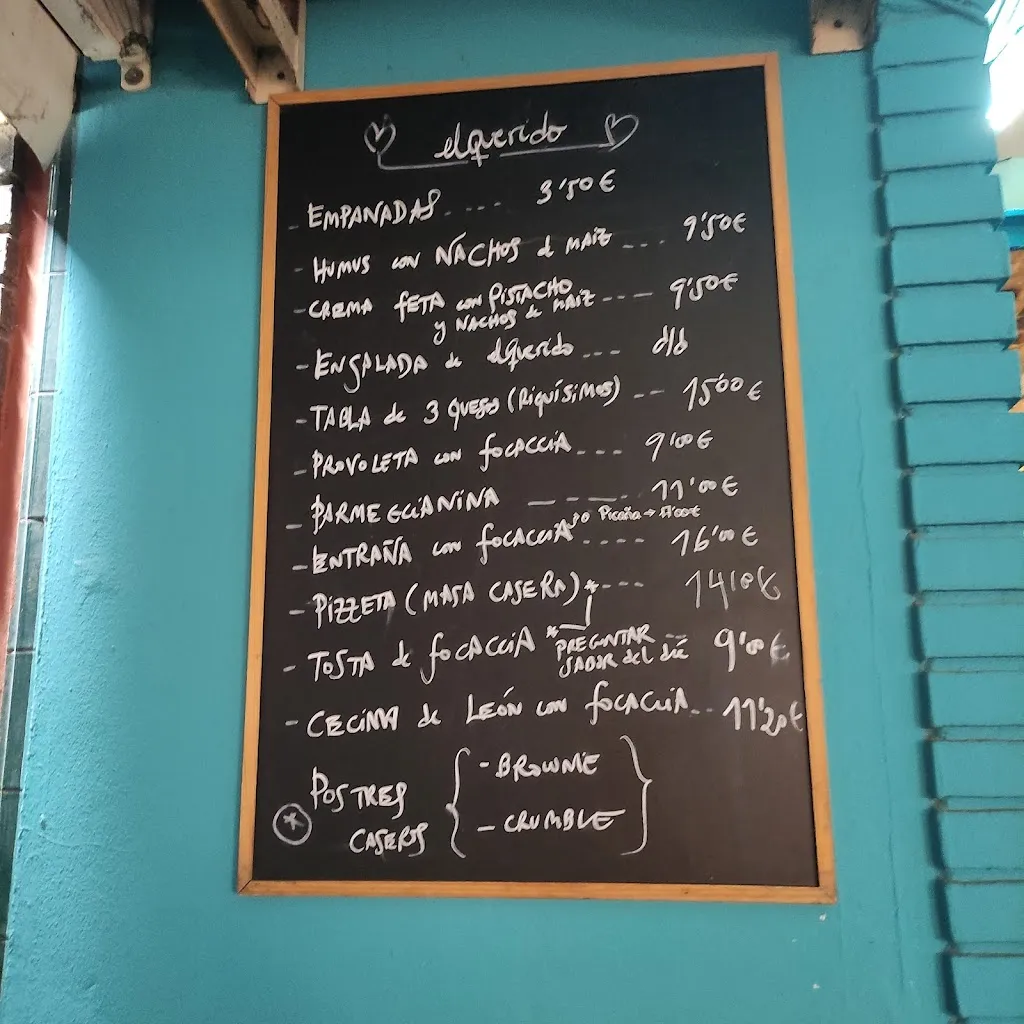 elquerido
- EMPANADAS .... 3'50€
- HUMUS con NACHOS de MAIZ ... 9'50€
- CREMA FETA con PISTACHO
y NACHOS de MAIZ --- 9'50€
- ENSALADA de elquerido ...
- TABLA de 3 QUESOS (RIQUÍSIMOS) -- 15'00€
- PROVOLETA con focaccia ... 9'00€
- PARMEGGIANINA ---- 11'00€
- ENTRAÑA con focaccia .... 16'00€
o Picaña →
- PIZZETA (MASA CASERA) * --- 14'00€
- TOSTA de focaccia * PREGUNTAR -- 9'00€
SABOR del día
- CECINA de LEÓN con focaccia .. 11'20€
* POSTRES
CASEROS
- BROWNIE
- CRUMBLE